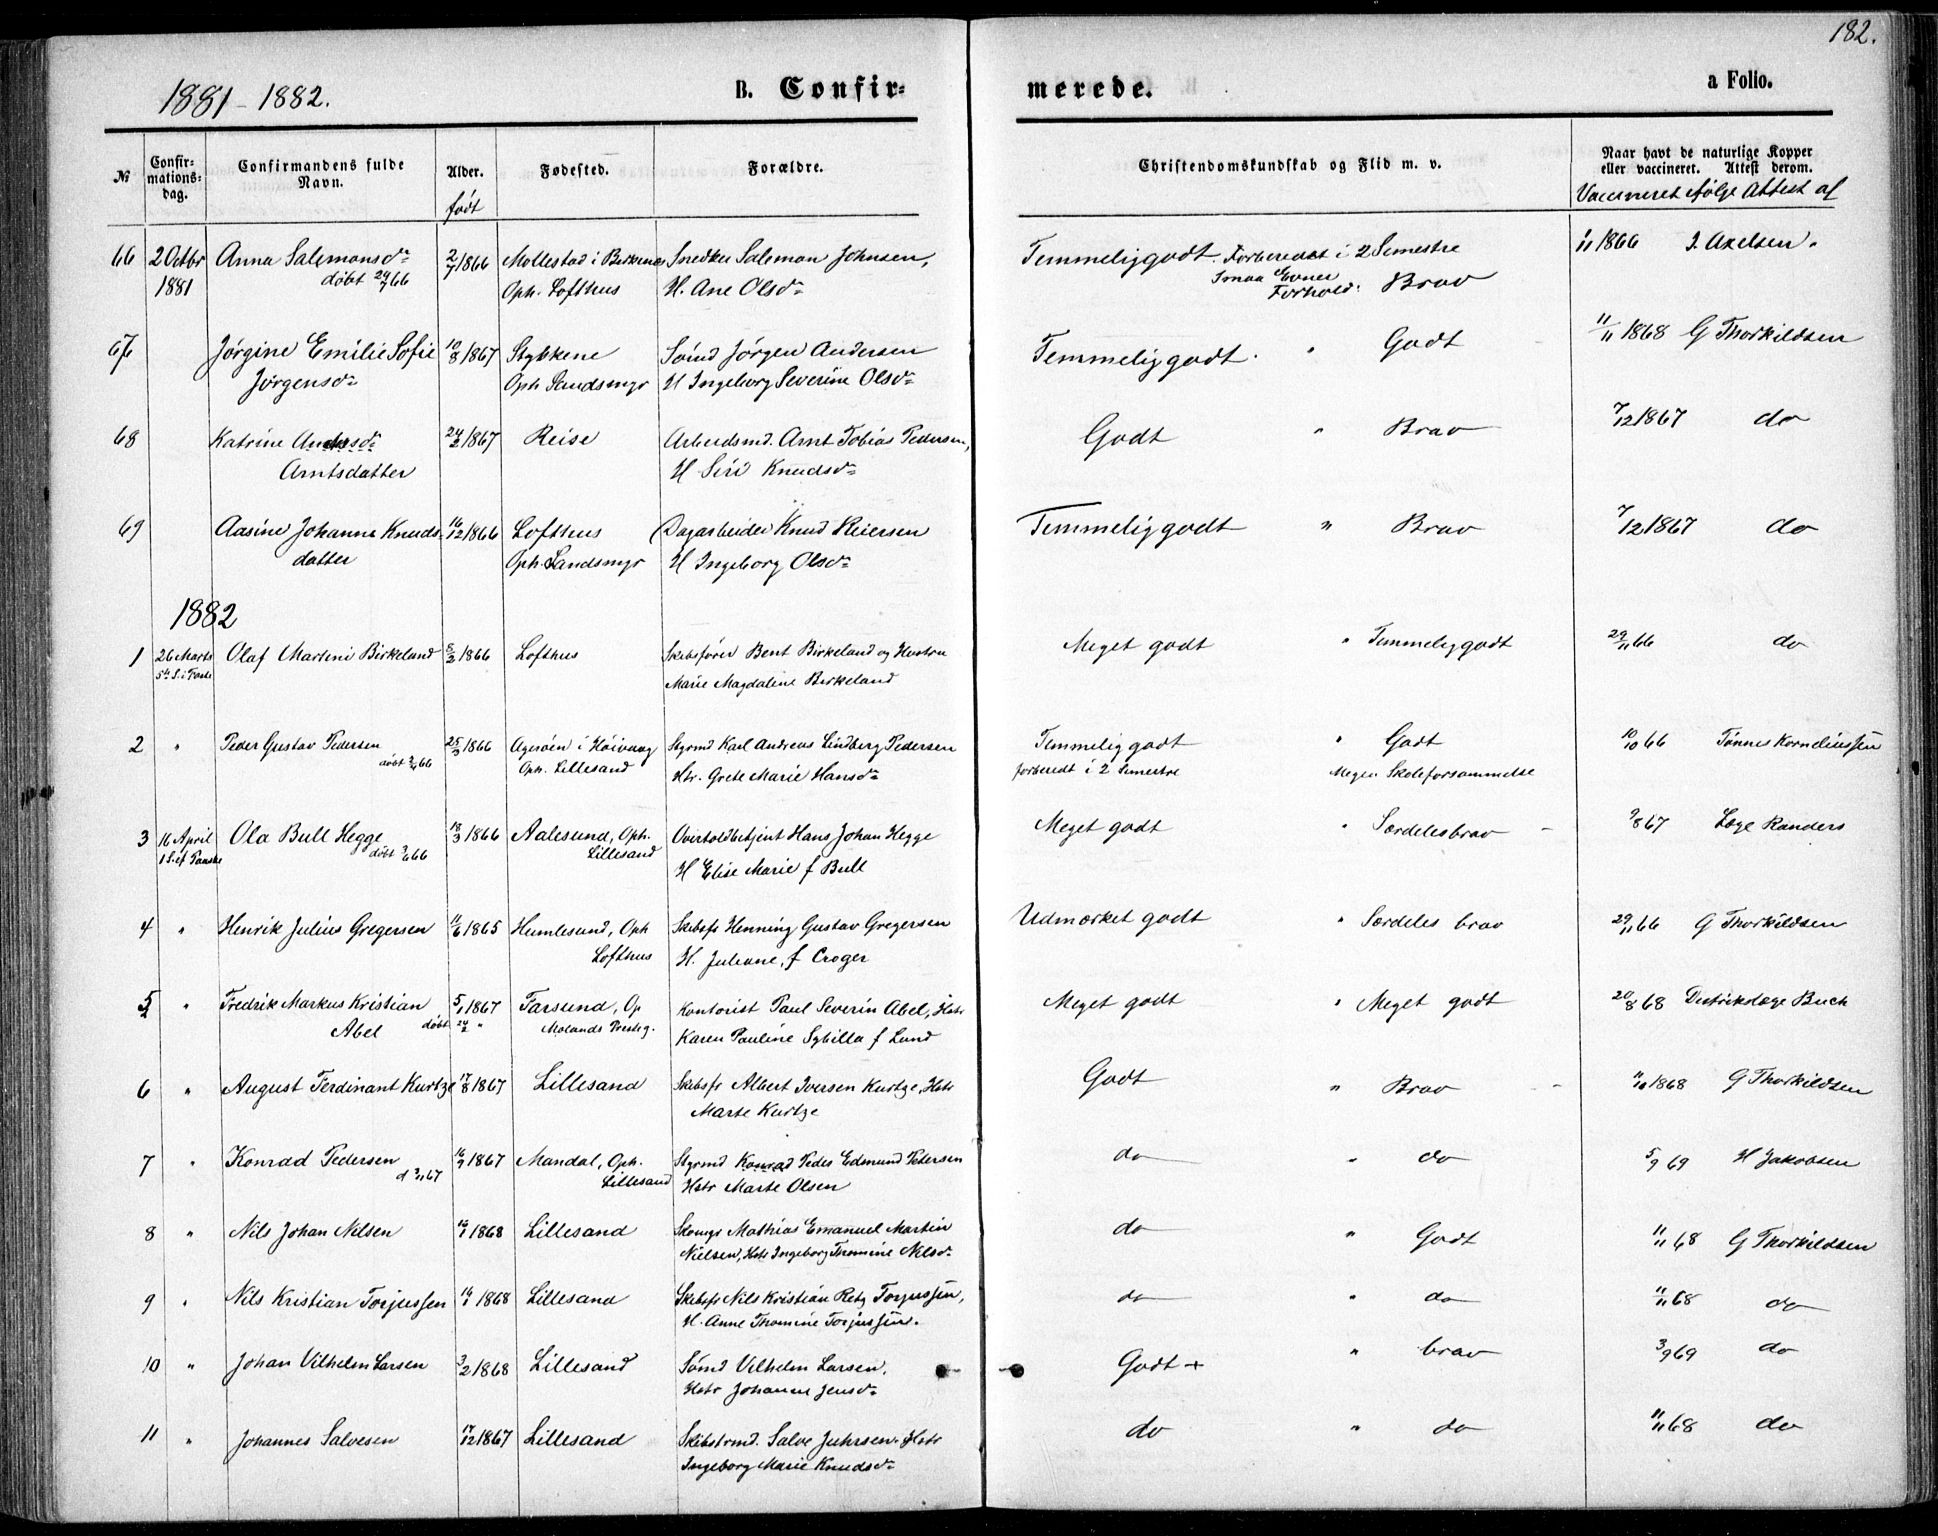 182.
1881-1882.
B. Confir-
merede.
a Folio.
№
Confir-
mations-
dag.
Confirmandens fulde
Navn.
Alder.
født
Fødested.
Forældre.
Christendomskundskab og Flid m. v.
Naar havt de naturlige Kopper
eller vaccineret. Attest derom.
Vaccineret ifølge Attest af
66 2 Octbr Anna Salemonsdr 2/7 1866 Mollestad i Birkenes Snedker Salemon Johnsen, Temmelig godt. Forberedt i 2 Semestre 1/11 1866 J. Axelsen.
1881 døbt 29/7 66 Oph. Lofthus H. Ane Olsdr Smaa Evner Forhold: Brav
67 Jørgine Emilie Sofie 10/8 1867 Stykkene Sømd Jørgen Andersen Temmelig godt. " Godt 11/11 1868 G Thorkildsen
Jørgensdr Oph Sandsmyr H Ingeborg Severine Olsdr
68 Katrine 24/2 1867 Reise Arbeidsmd. Arnt Tobias Pedersen, Godt " Brav 7/12 1867 do
Arntsdatter H Siri Knudsdr
69 Aasine Johanne Knuds- 16/12 1866 Lofthus Dagarbeider Knud Reiersen Temmelig godt " Brav 7/12 1867 do
datter Oph. Sandsmyr H Ingeborg Olsdr
1882
1 26 Marts Olaf Martini Birkeland 5/3 1866 Lofthus Skibsfører Bent Birkeland og Hustru Meget godt " Temmelig godt 29/11 66 do
5te S. i Faste Marie Magdaline Birkeland
2 " Peder Gustav Pedersen 25/3 1866 Agerøen i Høivaag Styrmd Karl Andreas Lindberg Pedersen Temmelig godt " Godt 10/10 66 Tønnes Korneliussen
døbt 2/4 66 Oph. Lillesand Htr. Grete Marie Hansdr forberedt i 2 Semestre Megen Skoleforsømmelse
3 16 April Ola Bull Hegge 18/3 1866 Aalesund, Oph. Overtoldbetjent Hans Johan Hegge Meget godt " Særdeles brav 9/8 67 Læge Randers
1 S. ef Paaske døbt 3/6 66 Lillesand H Elise Marie f Bull
4 " Henrik Julius Gregersen 11/6 1865 Humlesund, Oph Skibsfr Henning Gustav Gregersen Udmærket godt " Særdeles brav 29/11 66 G Thorkildsen
Lofthus H. Juliane, f Croger
5 " Fredrik Markus Kristian 5/1 1867 Farsund, Op Kontorist Paul Severin Abel, Hstr Meget godt " Meget godt 20/8 68 Distriktslæge Buch
Abel døbt 24/2 " Molands Presteg. Karen Pauline Sybilla f Lund
6 " August Ferdinant Kurtze 17/8 1867 Lillesand Skibsfr Albert Iversen Kurtze, Hstr Godt " Brav 11/10 1868 G Thorkildsen
Marte Kurtze
7 " Konrad Pedersen 16/9 1867 Mandal, Oph. Styrmd Konrad Peder Edmund Petersen do " do 5/9 69 H Jakobsen
d 3/11 67 Lillesand Hstr Marte Olsen
8 " Nils Johan Nilsen 16/1 1868 Lillesand Skomgr Mathias Emanuel Martin do " Godt 11/11 68 G Thorkildsen
Nielsen, Hstr Ingeborg Thomine Nilsdr
9 " Nils Kristian Torjussen 16/1 1868 Lillesand Skibsfr Nils Kristian Retz Torjussen, do " do 11/11 68 do
H. Anne Thomine Torjussen.
10 " Johan Vilhelm Larsen 3/2 1868 Lillesand Sømd Vilhelm Larsen, Godt + " brav 3/9 69 do
Hstr Johanne Jensdr
11 " Johannes Salvesen 17/12 1867 Lillesand Skibstmrmd. Salve Juhrsen. Hstr do " do 11/11 68 do
Ingeborg Marie Knudsdr